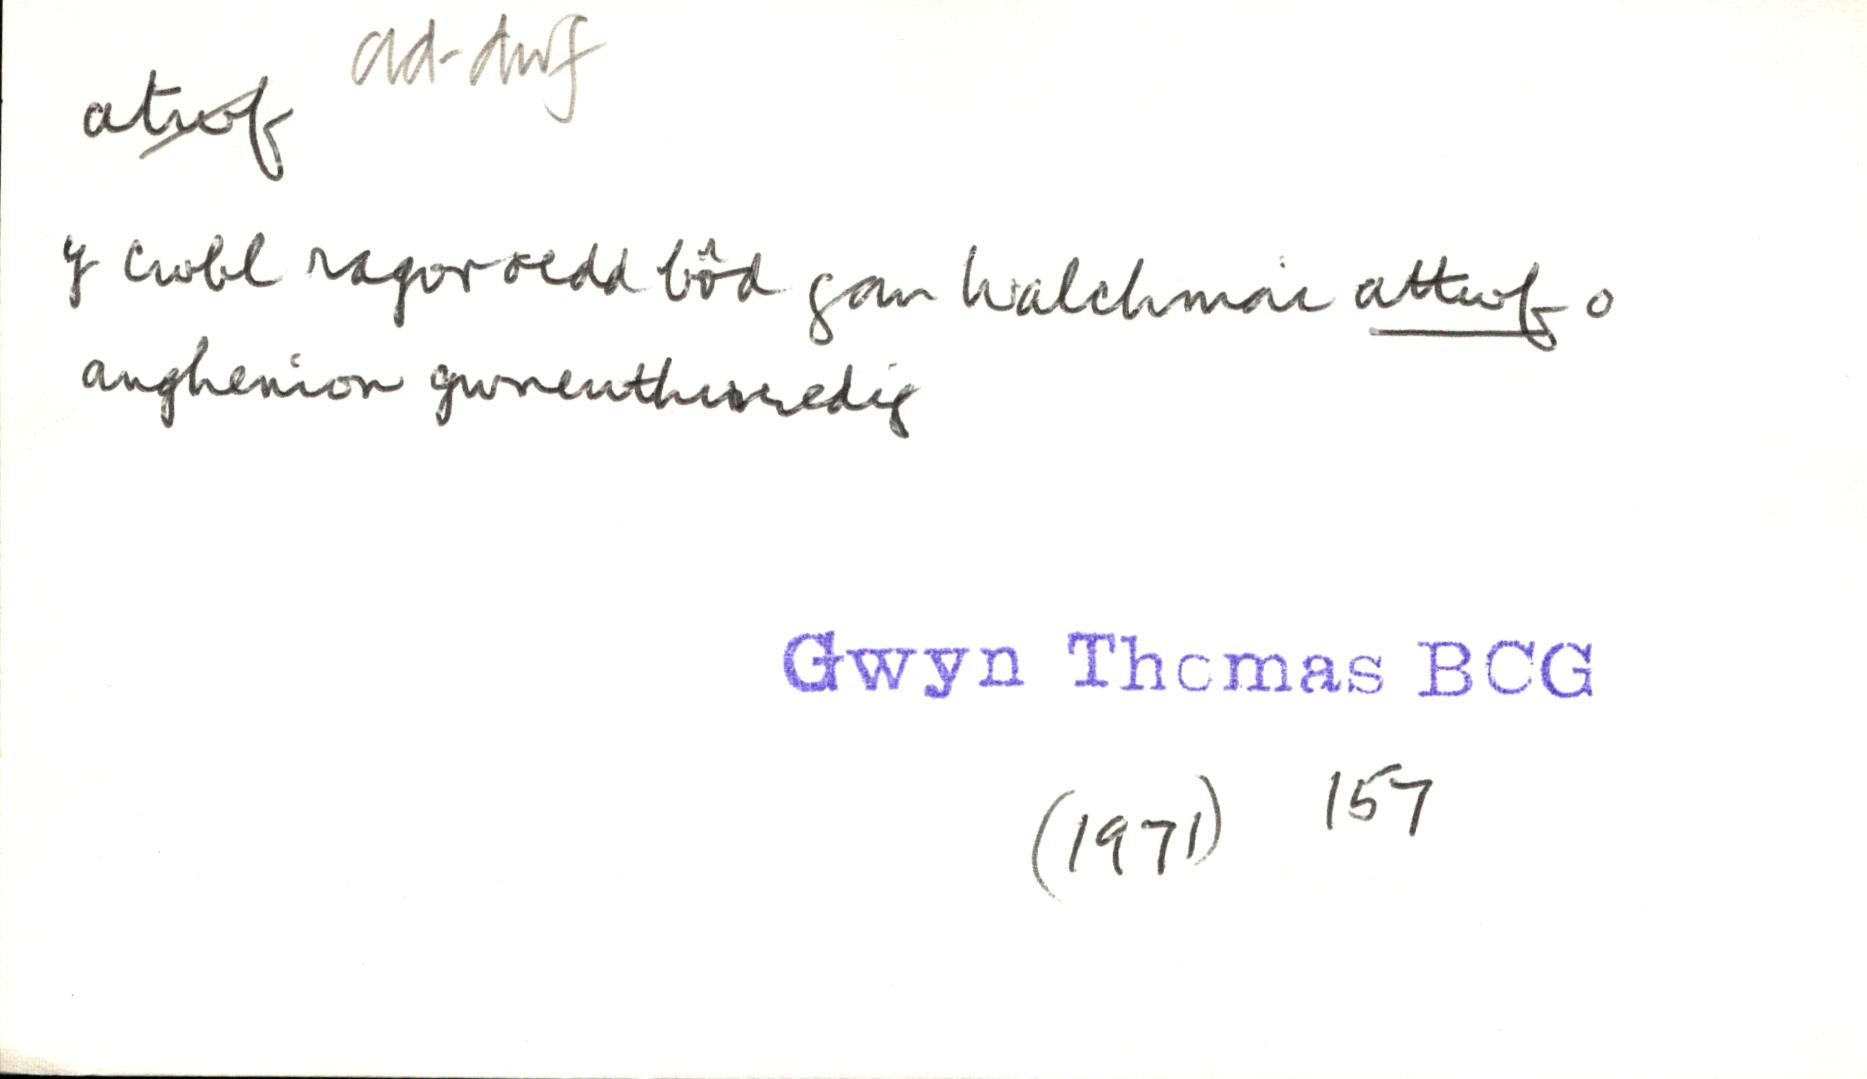 ad-dwf
atwf
y cwbl ragor oedd bôd gan Walchmai attwf o
anghenion gwneuthuredig
Gwyn Thomas BCG
(1971) 157